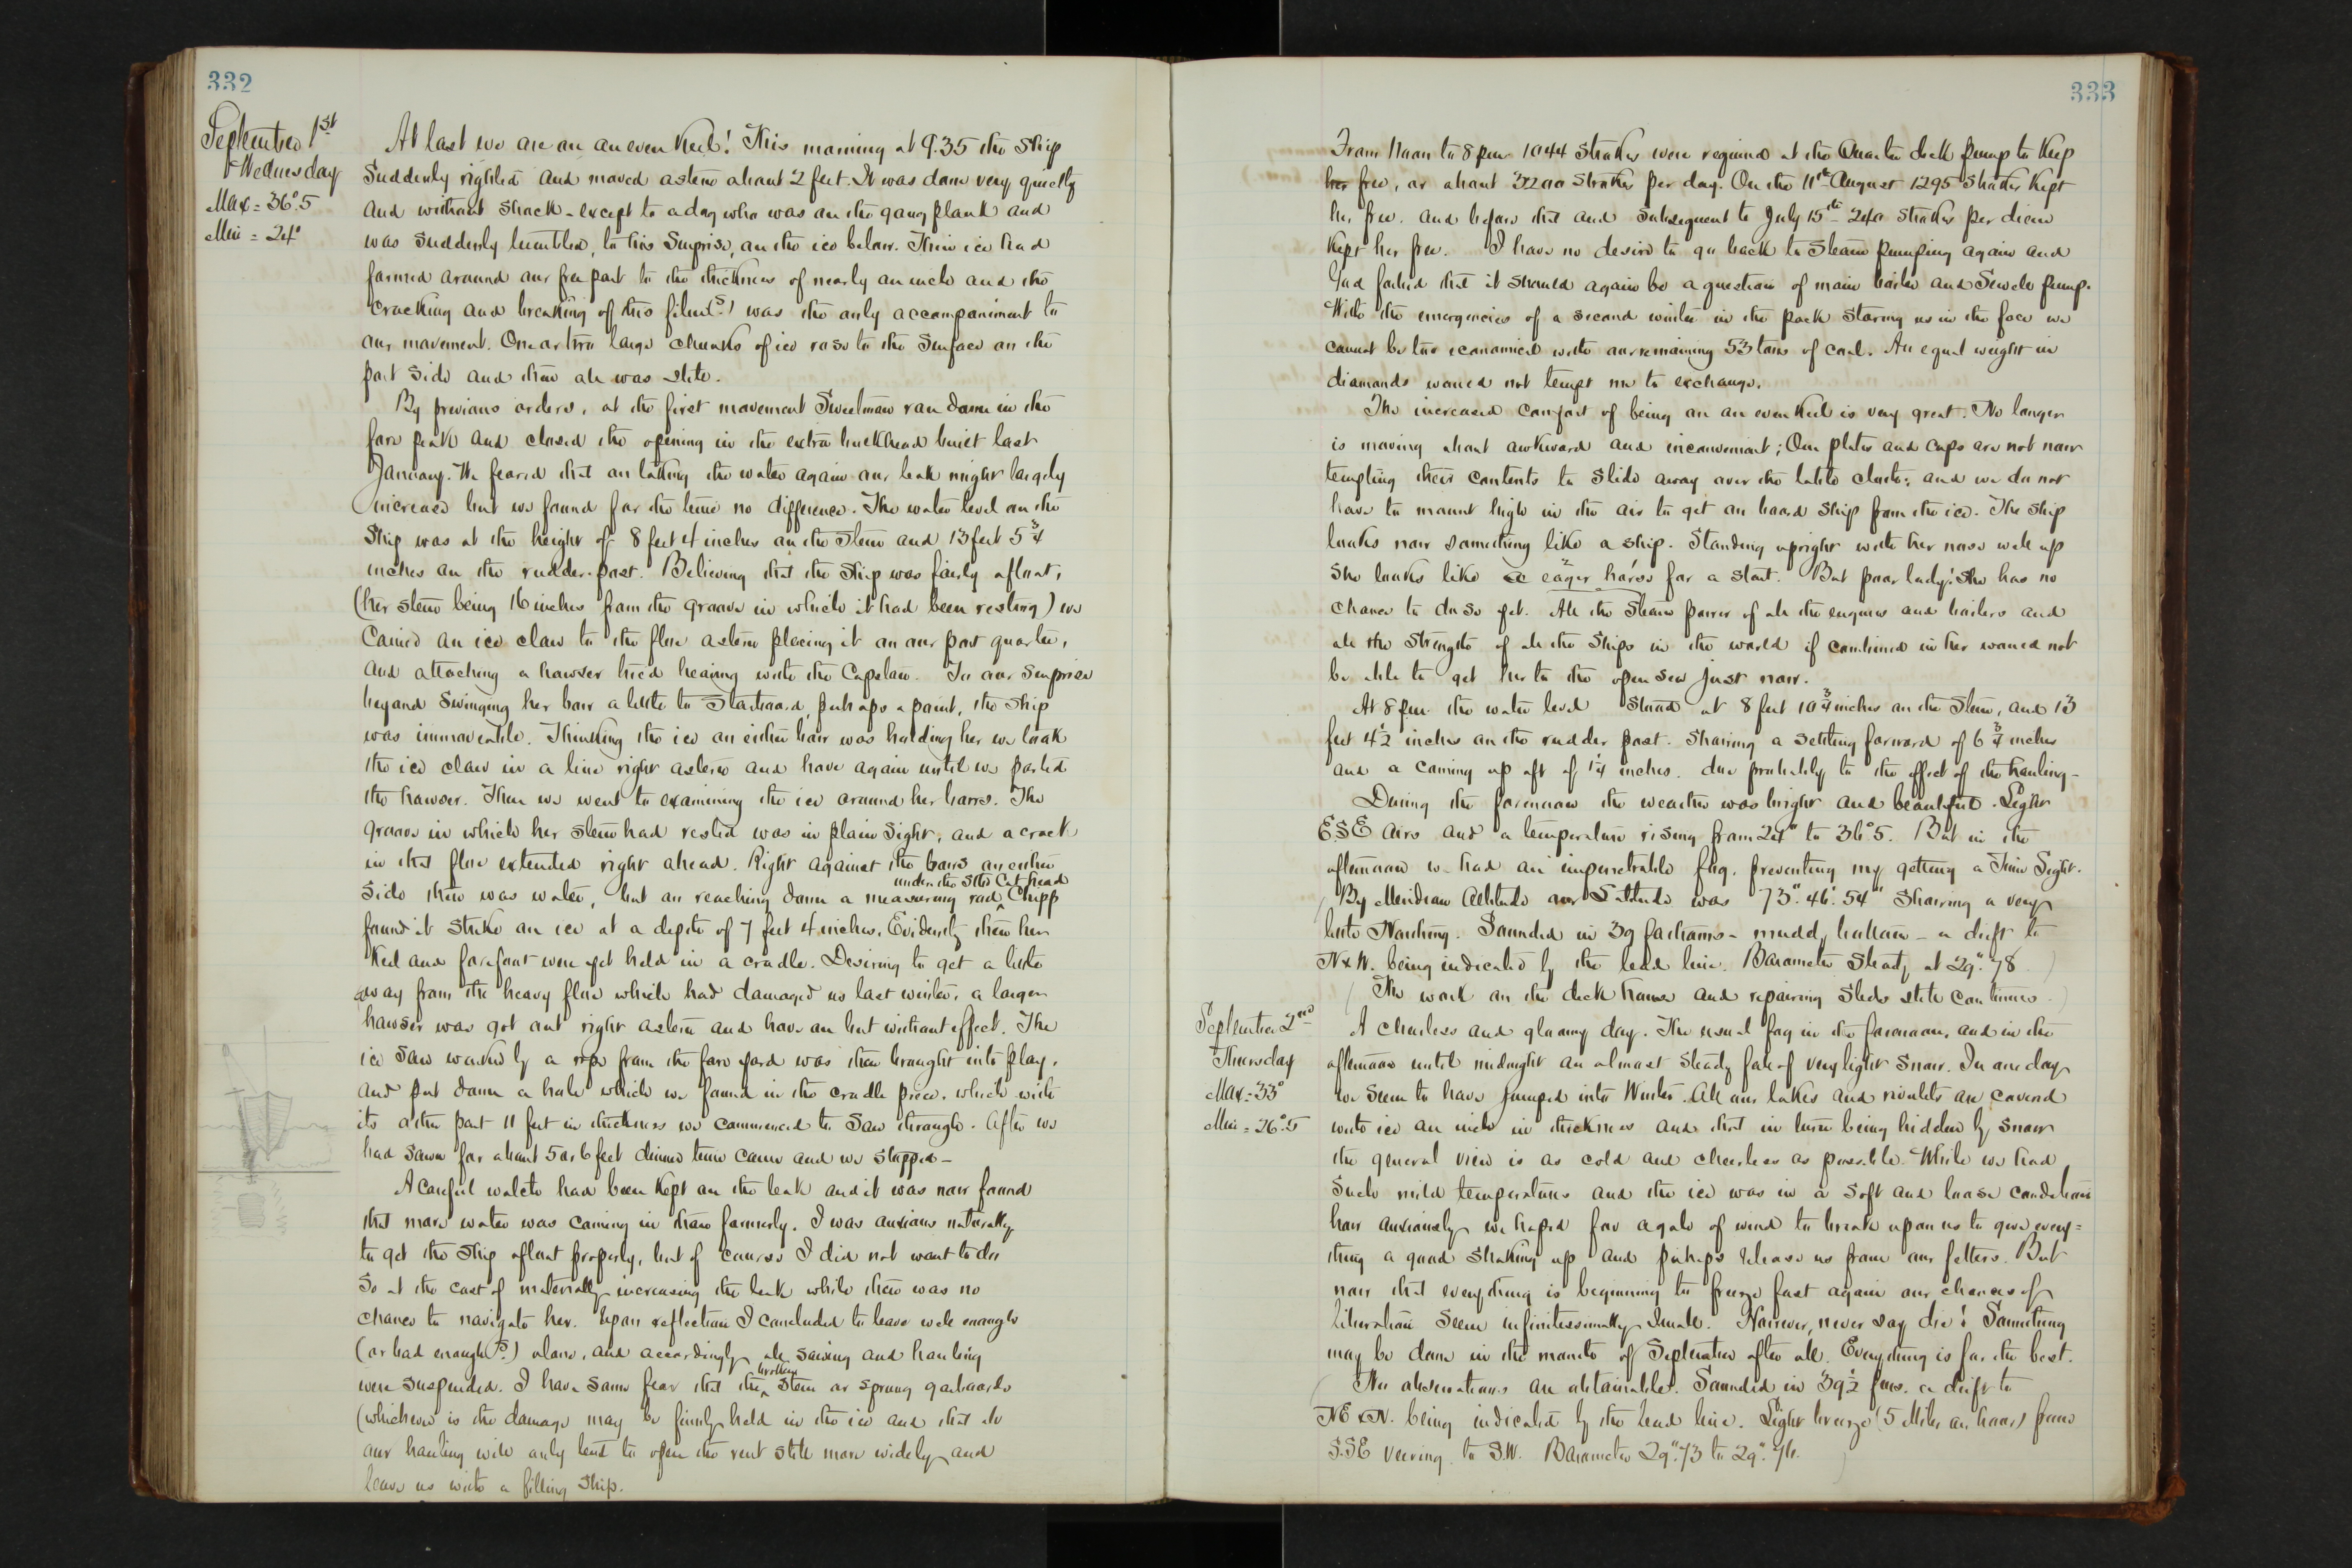 332
September 1st
Wednesday
Max = 36°.5
Min = 24°
At last we are on an even keel! This morning at 9.35 the ship
suddenly righted and moved astern about 2 feet. It was done very quietly
and without shock - except to a dog who was on the gang plank and
was suddenly tumbled, to his surprise, on the ice below. Thin ice had
formed around our free part to the thickness of nearly an inch and the
cracking and breaking of this film (?) was the only accompaniment to
our movement. One or two large chunks of ice rose to the surface on the
port side and then all was still.
By previous orders, at the first movement Sweetman ran down in the
fore peak and closed the opening in the extra bulkhead built last
January. We feared that on taking the water again our leak might largely
increase but we found for the time no difference. The water level on the
ship was at the height of 8 feet 4 inches on the stem and 13 feet 5 3/4
inches on the rudder-post. Believing that the ship was fairly afloat,
(her stem being 16 inches from the groove in which it had been resting) we
carried an ice claw to the floe astern placing it on our port quarter,
and attaching a hawser tried heaving with the capstan. To our surprise
beyond swinging her bow a little to starboard, perhaps a point, the ship
was immoveable. Thinking the ice on either bow was holding her we took
the ice claw in a line right astern and hove again until we parted
the hawser. Then we went to examining the ice around her bows. The
groove in which her stem had rested was in plain sight, and a crack
in that floe extended right ahead. Right against the bows on either
side there was water, but on reaching down a measuring rod ^ under the stbd cat head Chipp
found it strike on ice at a depth of 7 feet 4 inches. Evidently then her
keel and forefoot were yet held in a cradle. Desiring to get a little
away from the heavy floe which had damaged us last winter, a larger
hawser was got out right astern and hove on but without effect. The
ice saw worked by a rope from the fore yard was then brought into play,
and put down a hole which we found in the cradle piece, which with
its other part 11 feet in thickness we commenced to saw through. After we
had sawn for about 5 or 6 feet dinner time came and we stopped -
A careful watch had been kept on the leak and it was now found
that more water was coming in than formerly. I was anxious naturally
to get the ship afloat properly, but of course I did not want to do
so at the cost of materially increasing the leak while there was no
chance to navigate her. Upon reflection I concluded to leave well enough
(or bad enough (?)) alone, and accordingly all sawing and hauling
were suspended. I have some fear that the ^ broken stem or sprung garboards
(whichever is the damage may be firmly held in the ice and that all
our hauling will only tend to open the rent still more widely and
leave us with a filling ship.
333
From Noon to 8 pm 1044 strokes were required at the Quarter deck pump to keep
her free, or about 3200 strokes per day. On the 11th August 1295 strokes kept
her free. And before that and subsequent to July 15th 240 strokes per diem
kept her free. I have no desire to go back to steam pumping again and
God forbid that it should again be a question of main boiler and Sewell pump.
With the emergencies of a second winter in the pack staring us in the face we
cannot be too economical with our remaining 53 tons of coal. An equal weight in
diamonds would not tempt me to exchange.
The increased comfort of being on an even keel is very great. No longer
is moving about awkward and inconvenient; Our plates and cups are not now
tempting their contents to slide away over the table cloth; and we do not
have to mount high in the air to get on board ship from the ice. The ship
looks now something like a ship. Standing upright with her nose well up
she looks like a eager horse for a start. But poor lady! She has no
chance to do so yet. All the steam power of all the engines and boilers and
all the strength of all the ships in the world if combined in her would not
be able to get her to the open sea just now.
At 8 pm the water level stood at 8 feet 10 3/4 inches on the stem, and 13
feet 4 1/2 inches on the rudder post. Showing a settling forward of 6 3/4 inches
and a coming up aft of 1 1/4 inches. due probably to the effect of the hauling -
During the forenoon the weather was bright and beautiful. Light
E.S.E airs and a temperature rising from 24° to 36°.5. But in the
afternoon we had an impenetrable fog, preventing my getting a Time Sight.
By Meridian Altitude our Latitude was 73°. 46'. 54" Showing a very
little Northing. Sounded in 39 fathoms - muddy bottom - a drift to
N x W. being indicated by the lead line. Barometer steady at 29".78
The work on the deck house and repairing sleds still continues.
September 2nd
Thursday
Max = 33°
Min = 26°.5
A cheerless and gloomy day. The usual fog in the forenoon, and in the
afternoon until midnight an almost steady fall of very light snow. In one day
we seem to have jumped into Winter. All our lakes and rivulets are covered
with ice an inch in thickness and that in turn being hidden by snow
the general view is as cold and cheerless as possible. While we had
such mild temperatures and the ice was in a soft and loose condition
how anxiously we hoped for a gale of wind to break upon us to give every=
thing a good shaking up and perhaps release us from our fetters. But
now that everything is beginning to freeze fast again our chances of
liberation seem infinitessimally small. However, never say die! Something
may be done in the month of September after all. Everything is for the best.
No observations are obtainable. Sounded in 39 1/2 fms. a drift to
NE x N. being indicated by the lead line. Light breeze (5 miles an hour) from
S.SE veering to S.W. Barometer 29".73 to 29".76.